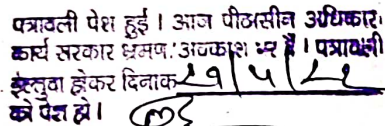 पत्रावली पेश हुई। आज पीठासीन अधिकारी
कार्य सरकार भ्रमण/अवकाश पर है। पत्रावली
हेतुवा होकर दिनांक 29/5/22
को पेश हो।